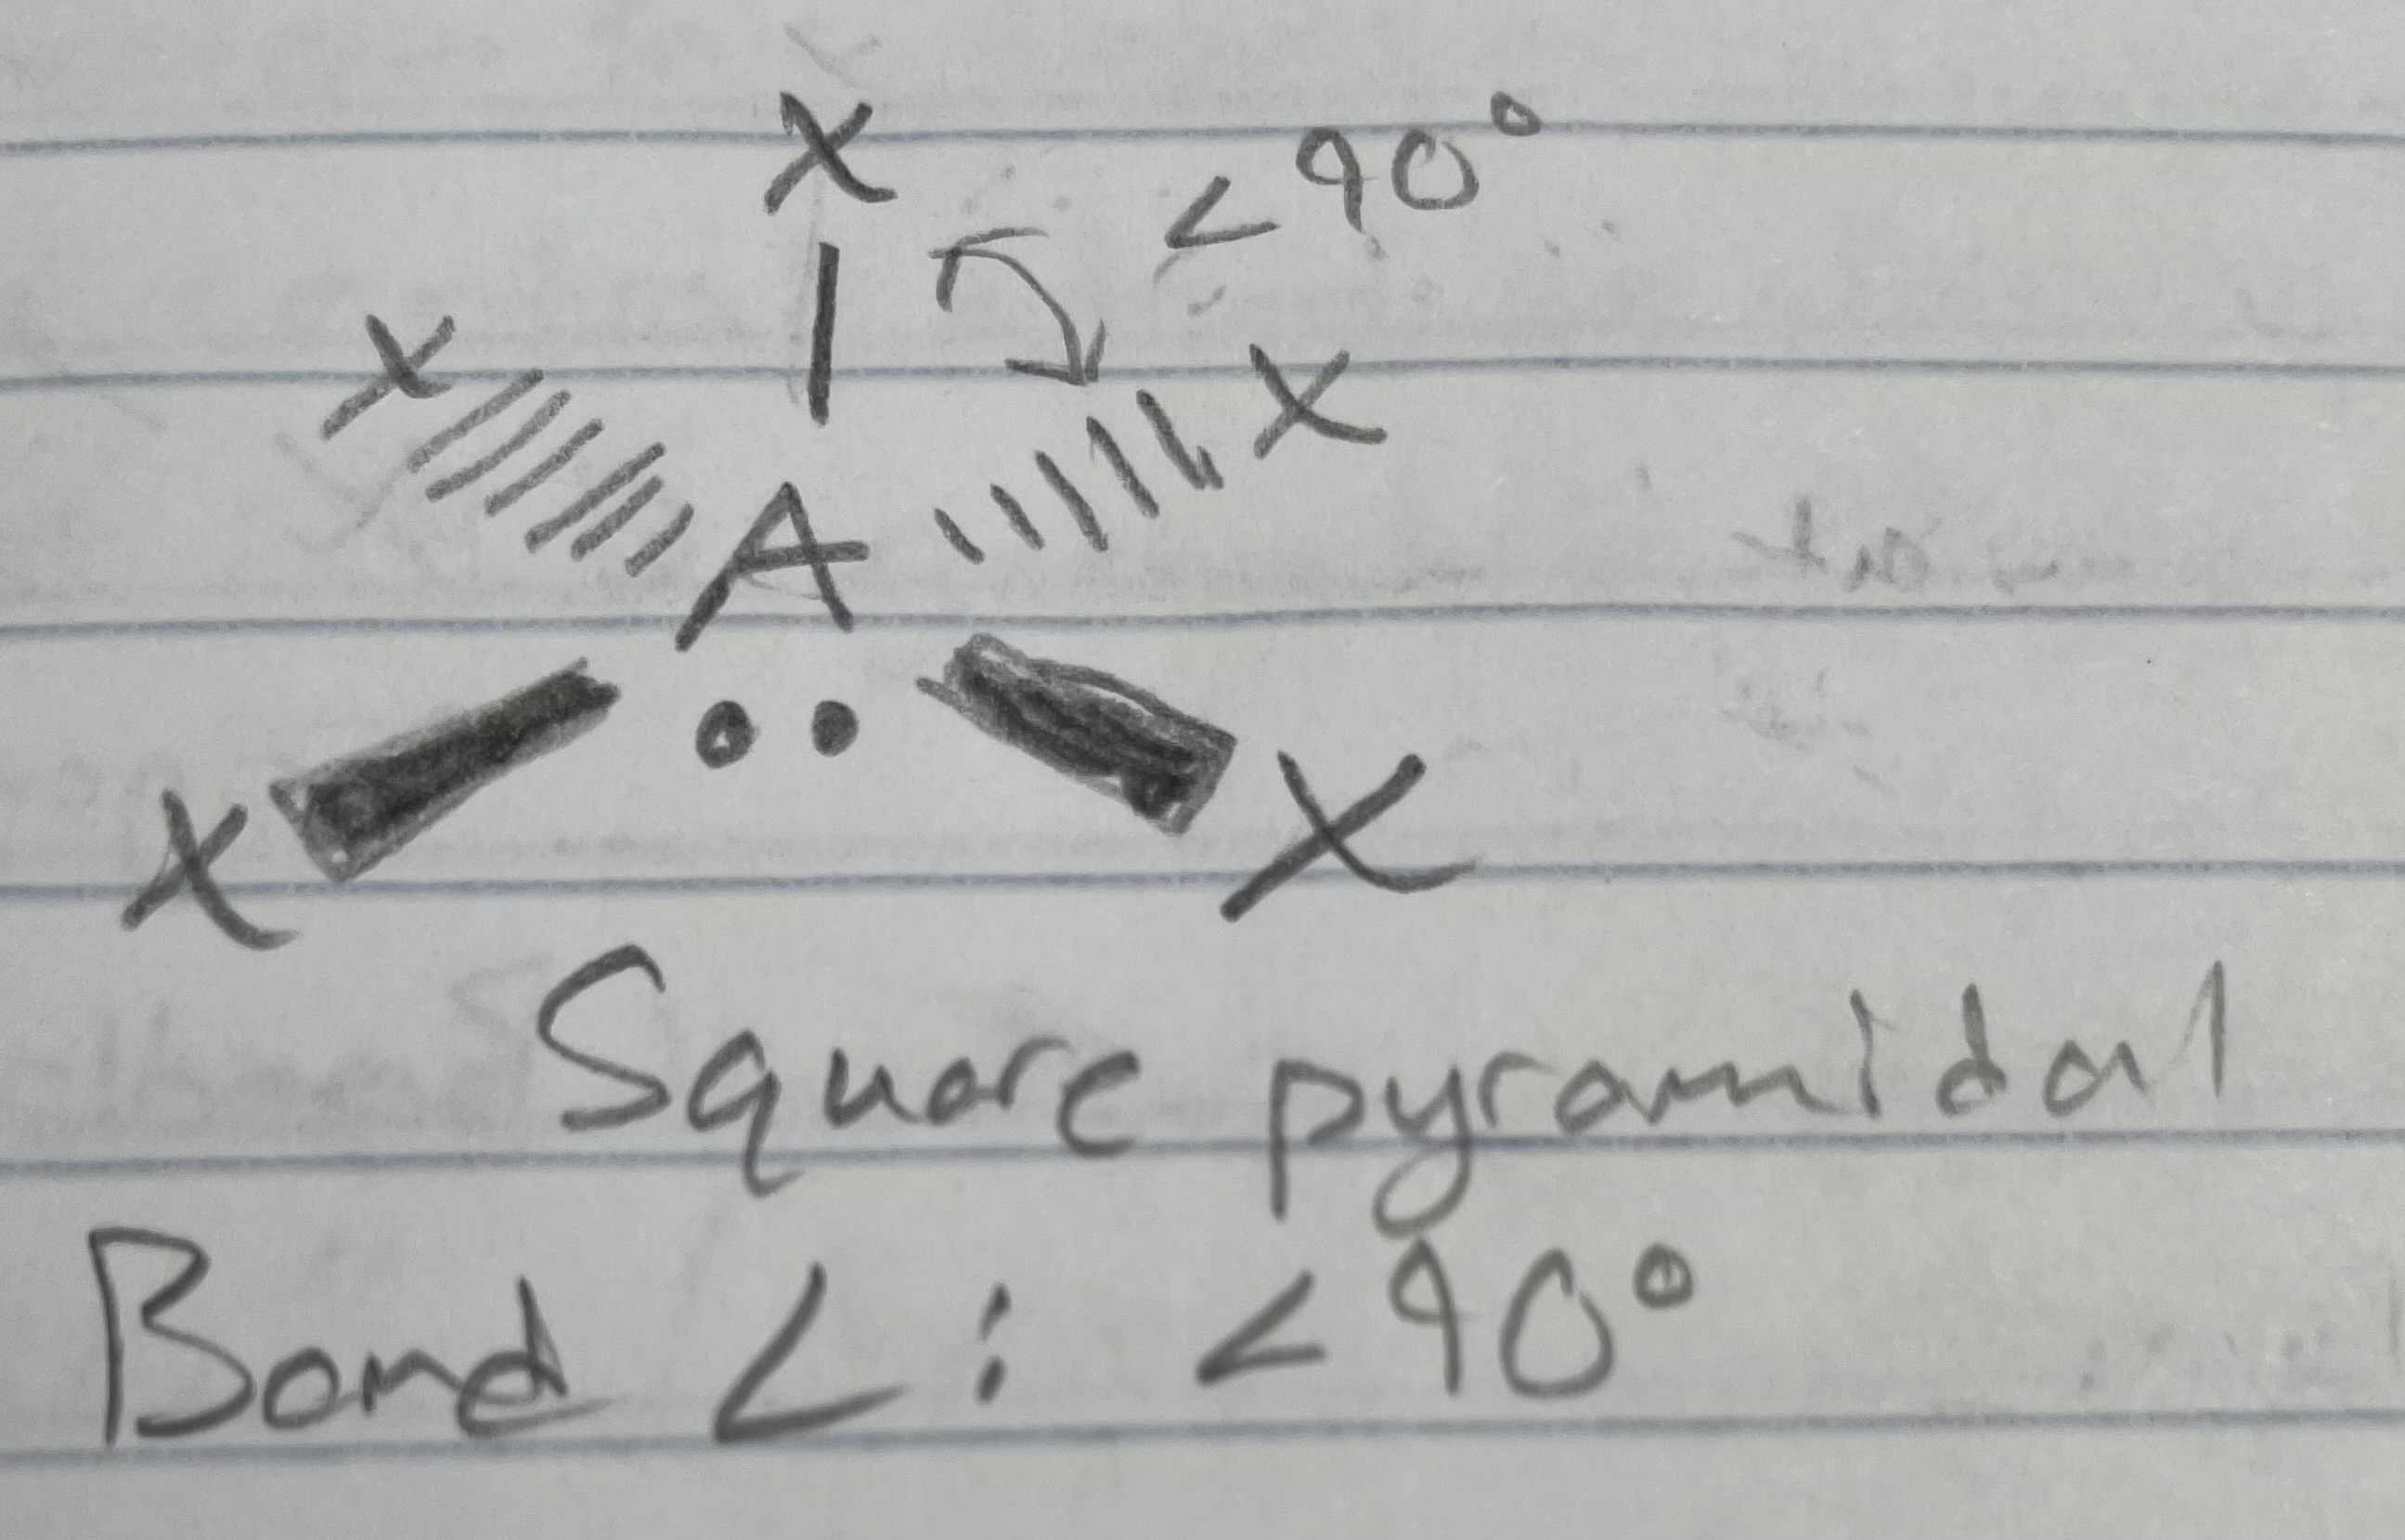 X
< 90°
X
X
A
X
X
Square pyramidal
Bond ∠: < 90°